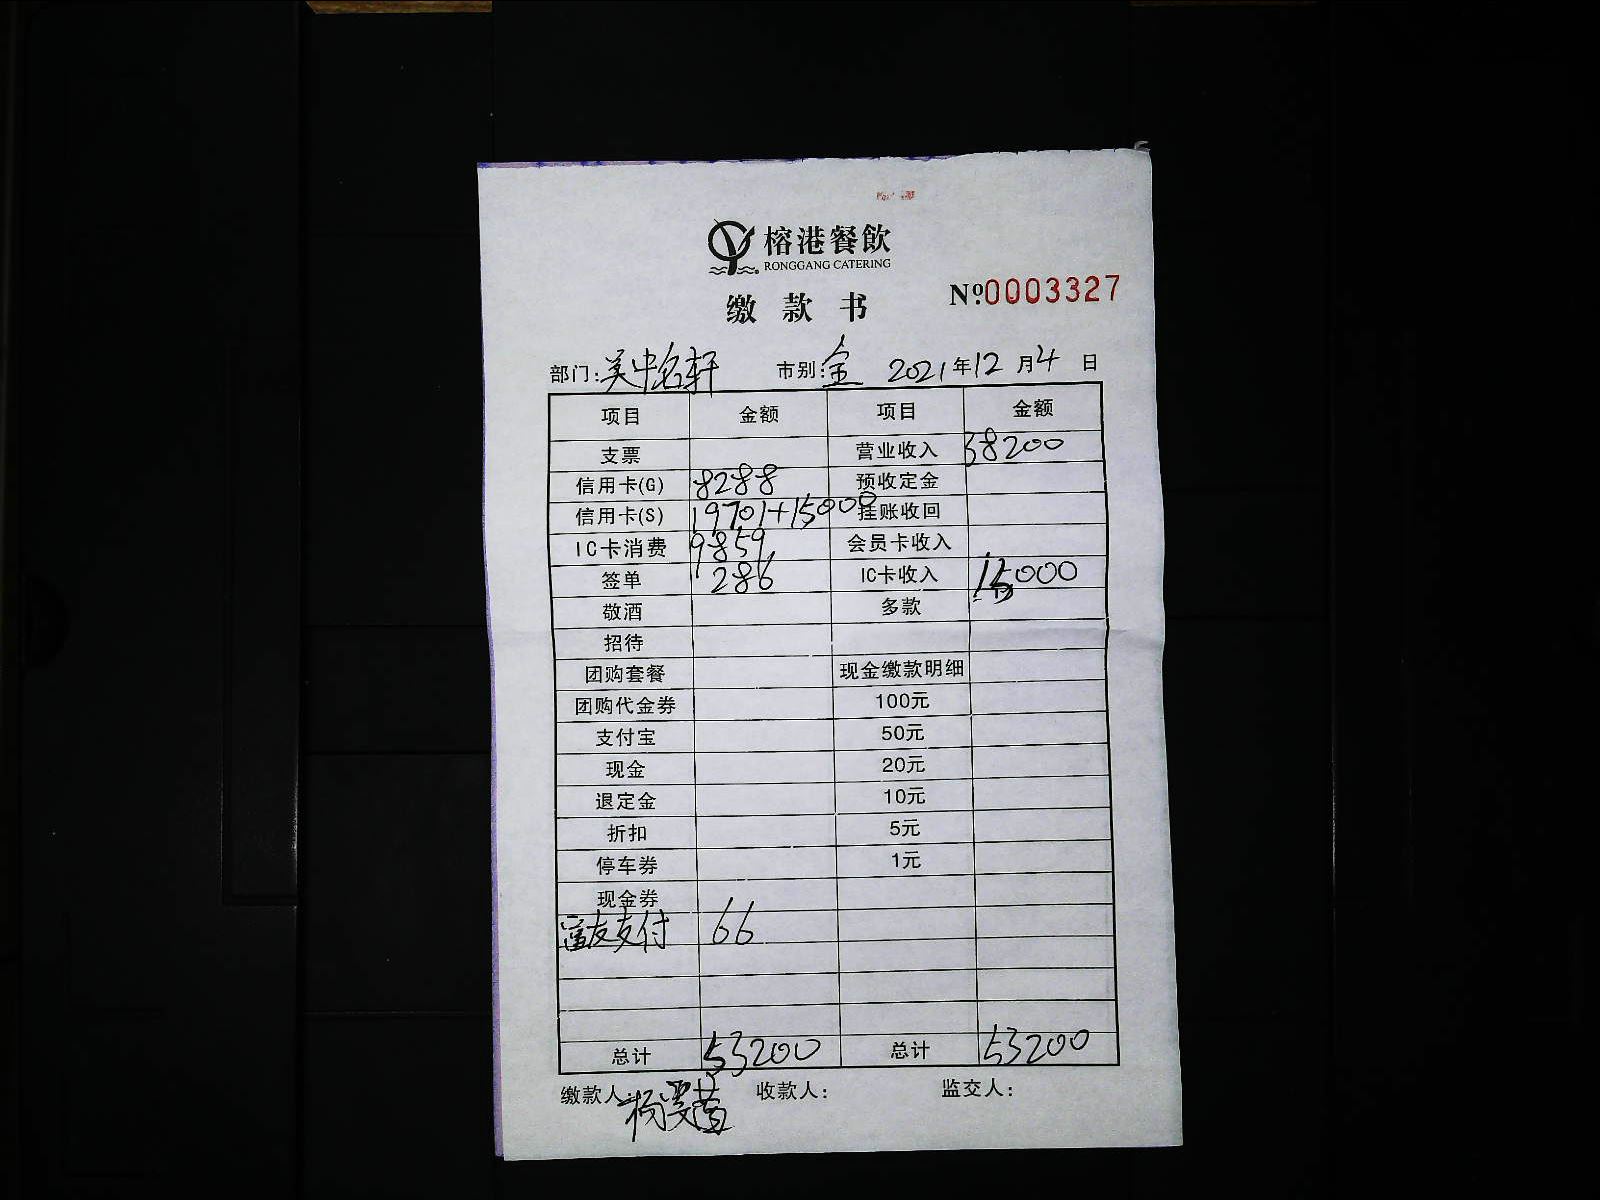 榕港餐飲
RONGGANG CATERING
缴款书
Nº:0003327
部门:吴中名轩 市别:全 2021年12月4日
项目 金额 项目 金额
支票 营业收入 38200
信用卡(G) 8288 预收定金
信用卡(S) 19701+15000 挂账收回
IC卡消费 9859 会员卡收入
签单 286 IC卡收入 15000
敬酒 多款
招待
团购套餐 现金缴款明细
团购代金券 100元
支付宝 50元
现金 20元
退定金 10元
折扣 5元
停车券 1元
现金券
富友支付 66
总计 53200 总计 53200
缴款人: 收款人: 监交人: